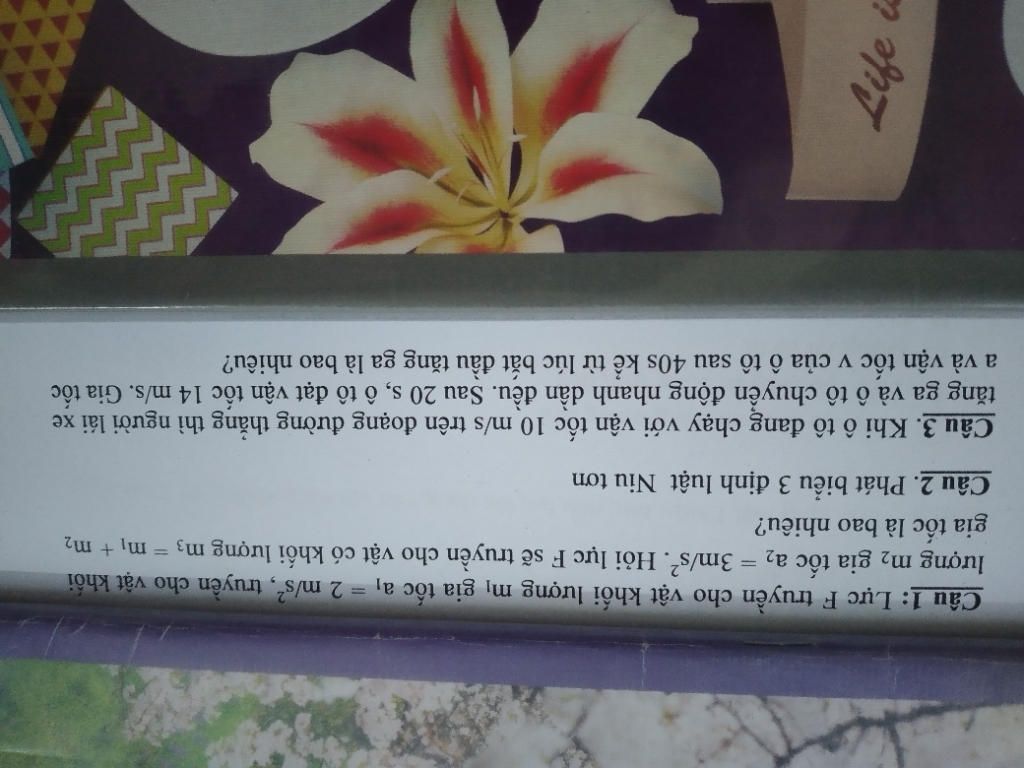 Câu 1: Lực F truyền cho vật khối lượng m₁ gia tốc a₁ = 2 m/s², truyền cho vật khối
lượng m₂ gia tốc a₂ = 3m/s². Hỏi lực F sẽ truyền cho vật có khối lượng m₃ = m₁ + m₂
gia tốc là bao nhiêu?
Câu 2. Phát biểu 3 định luật Niu tơn
Câu 3. Khi ô tô đang chạy với vận tốc 10 m/s trên đoạn đường thẳng thì người lái xe
tăng ga và ô tô chuyển động nhanh dần đều. Sau 20 s, ô tô đạt vận tốc 14 m/s. Gia tốc
a và vận tốc v của ô tô sau 40s kể từ lúc bắt đầu tăng ga là bao nhiêu?
Life